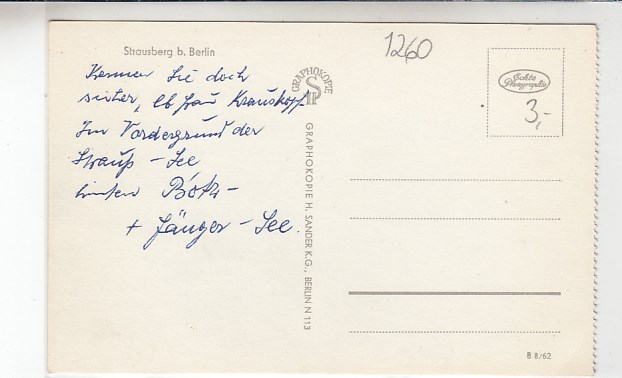 Strausberg b. Berlin
Kennen Sie doch
sicher, lb Frau Krauskopf.
Im Vordergrund der
Strauß-See
hinten Bötz-
+ Fänger-See.
1260
GRAPHOKOPIE
GRAPHOKOPIE H. SANDER K.G., BERLIN N 113
Echte
Photographie
3,-
B 8/62